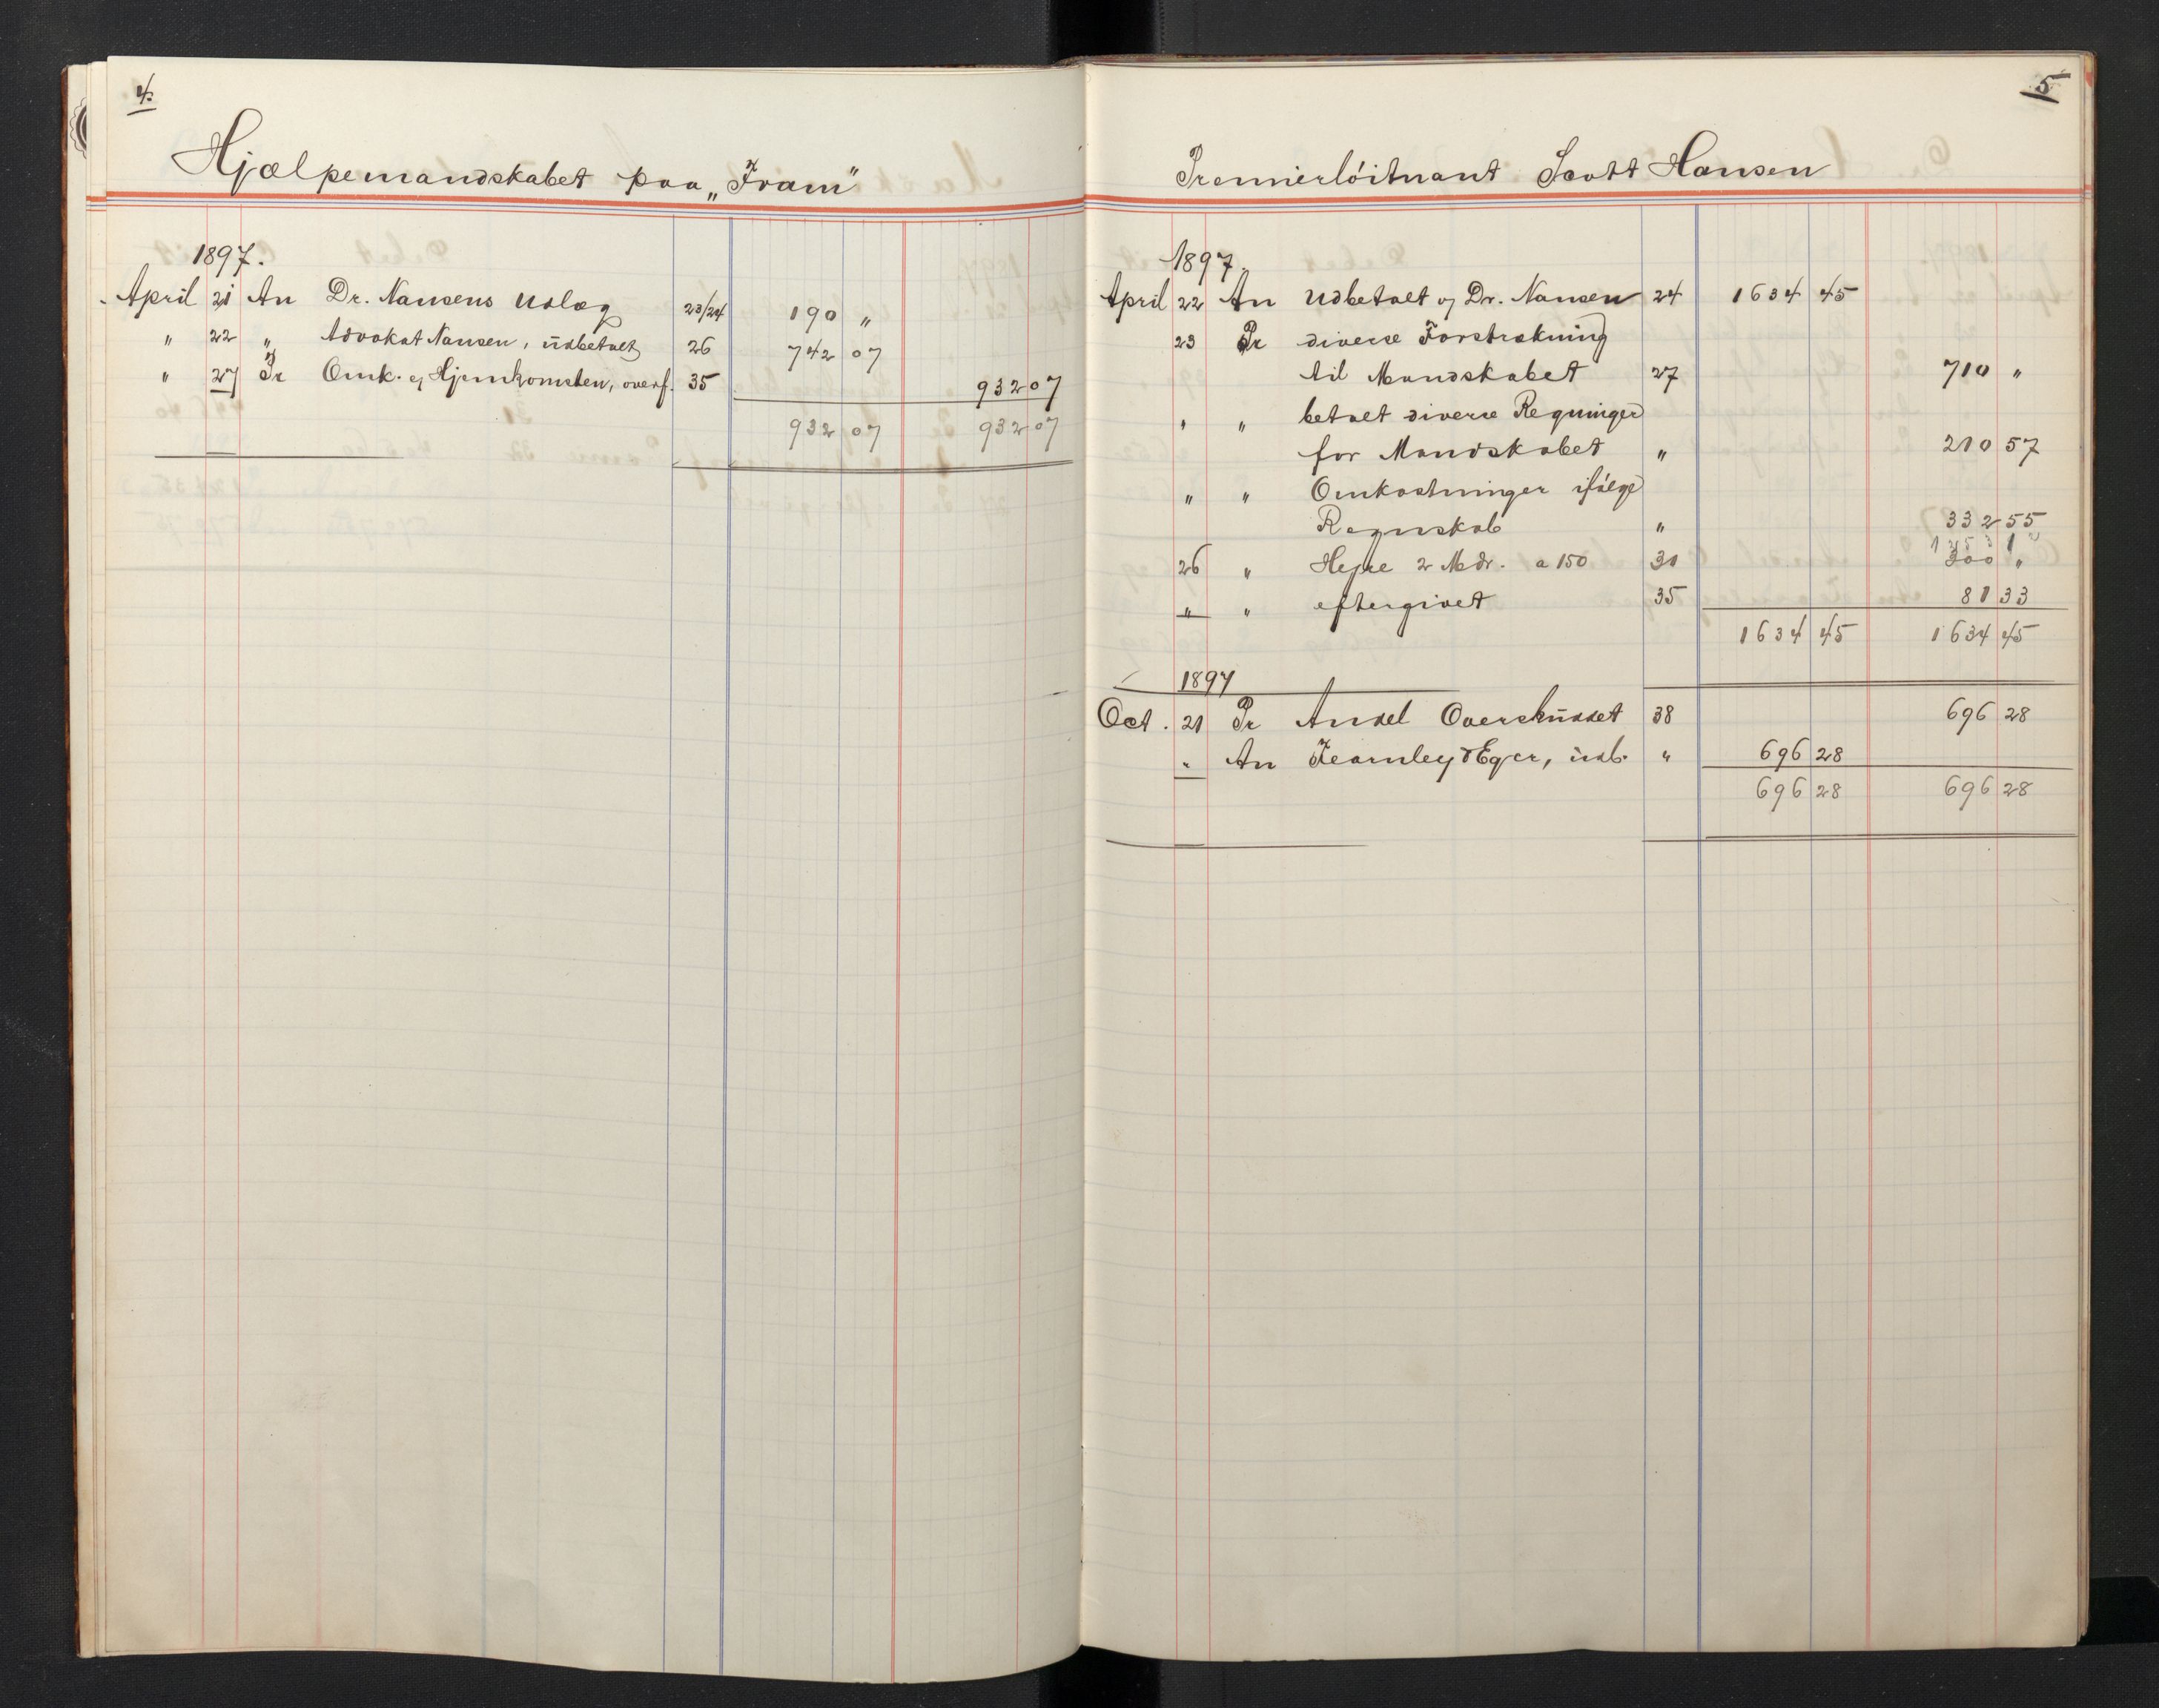 4.
Hjælpemandskabet paa „Fram"
1897.
April 21 An Dr. Nansens Udlæg 23/24 190 "
" 22 " Advokat Nansen, udbetalt 26 742 07
" 27 Pr Omk. v/ Hjemkomsten, overf. 35 932 07
932 07 932 07
5
Premierlöitnant Scott Hansen
1897.
April 22 An Udbetalt v/ Dr. Nansen 24 1634 45
23 Pr diverse Forstrækning
til Mandskabet 27 710 "
" " betalt diverse Regninger
for Mandskabet " 210 57
" " Omkostninger ifölge
Regnskab " 332 55
26 " Hyre 2 Mdr. a 150 30 300 "
" " eftergivet 35 81 33
1634 45 1634 45
1897
Oct. 21 Pr Andel Overskuddet 38 696 28
" An Fearnley & Eger, indb. " 696 28
696 28 696 28